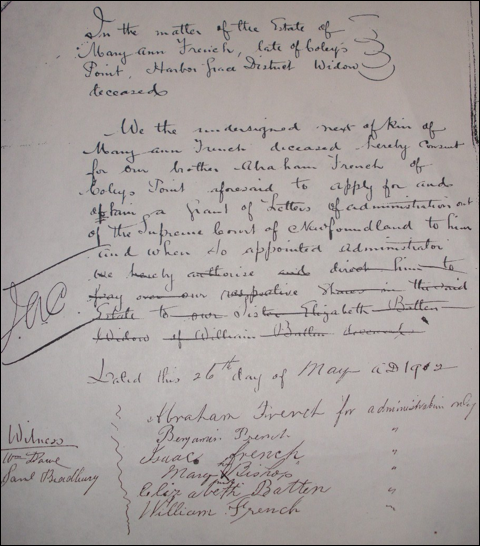 In the matter of the Estate of
Mary Ann French, late of Coleys
Point, Harbor Grace District Widow
deceased
We the undersigned next of kin of
Mary Ann French deceased hereby consent
for our brother Abraham French of
Coleys Point aforesaid to apply for and
obtain a Grant of Letters of administration out
of the Supreme Court of Newfoundland to him
and when so appointed Administrator
we hereby authorise and direct him to
pay over our respective shares in the said
Estate to our sister Elizabeth Batten
Widow of William Batten deceased
J.A.C.
Dated this 26th day of May A.D 1902
Abraham French for administration only
Benjamin French "
Isaac French "
Mary Bishop "
Elizabeth Batten "
William French "
Witness
Wm Dawe
Saml Bradbury